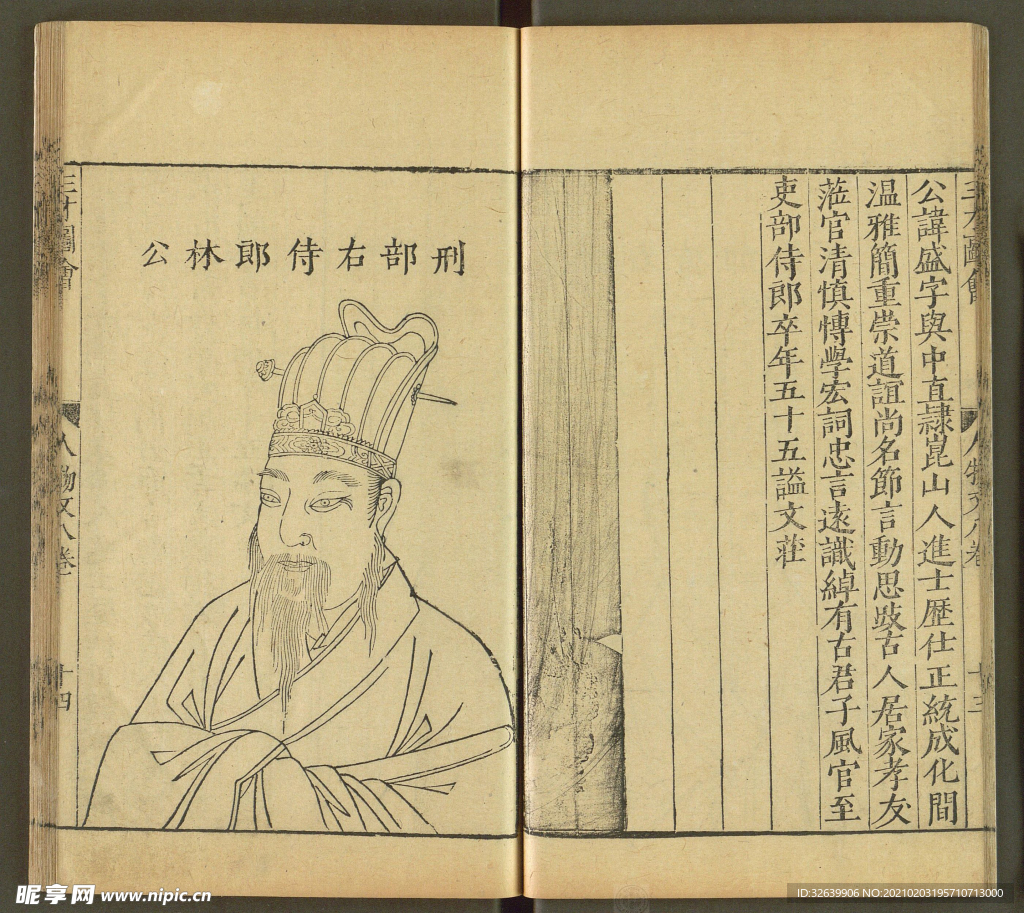 三才圖會
人物文八卷
十三
公諱盛字與中直隸崑山人進士歷仕正統成化間
温雅簡重崇道誼尚名節言動思效古人居家孝友
蒞官清慎博學宏詞忠言遠識綽有古君子風官至
吏部侍郎卒年五十五謚文莊
刑部右侍郎林公
三才圖會
人物文八卷
十四
昵享网 www.nipic.cn
ID:32639906 NO:20210203195710713000